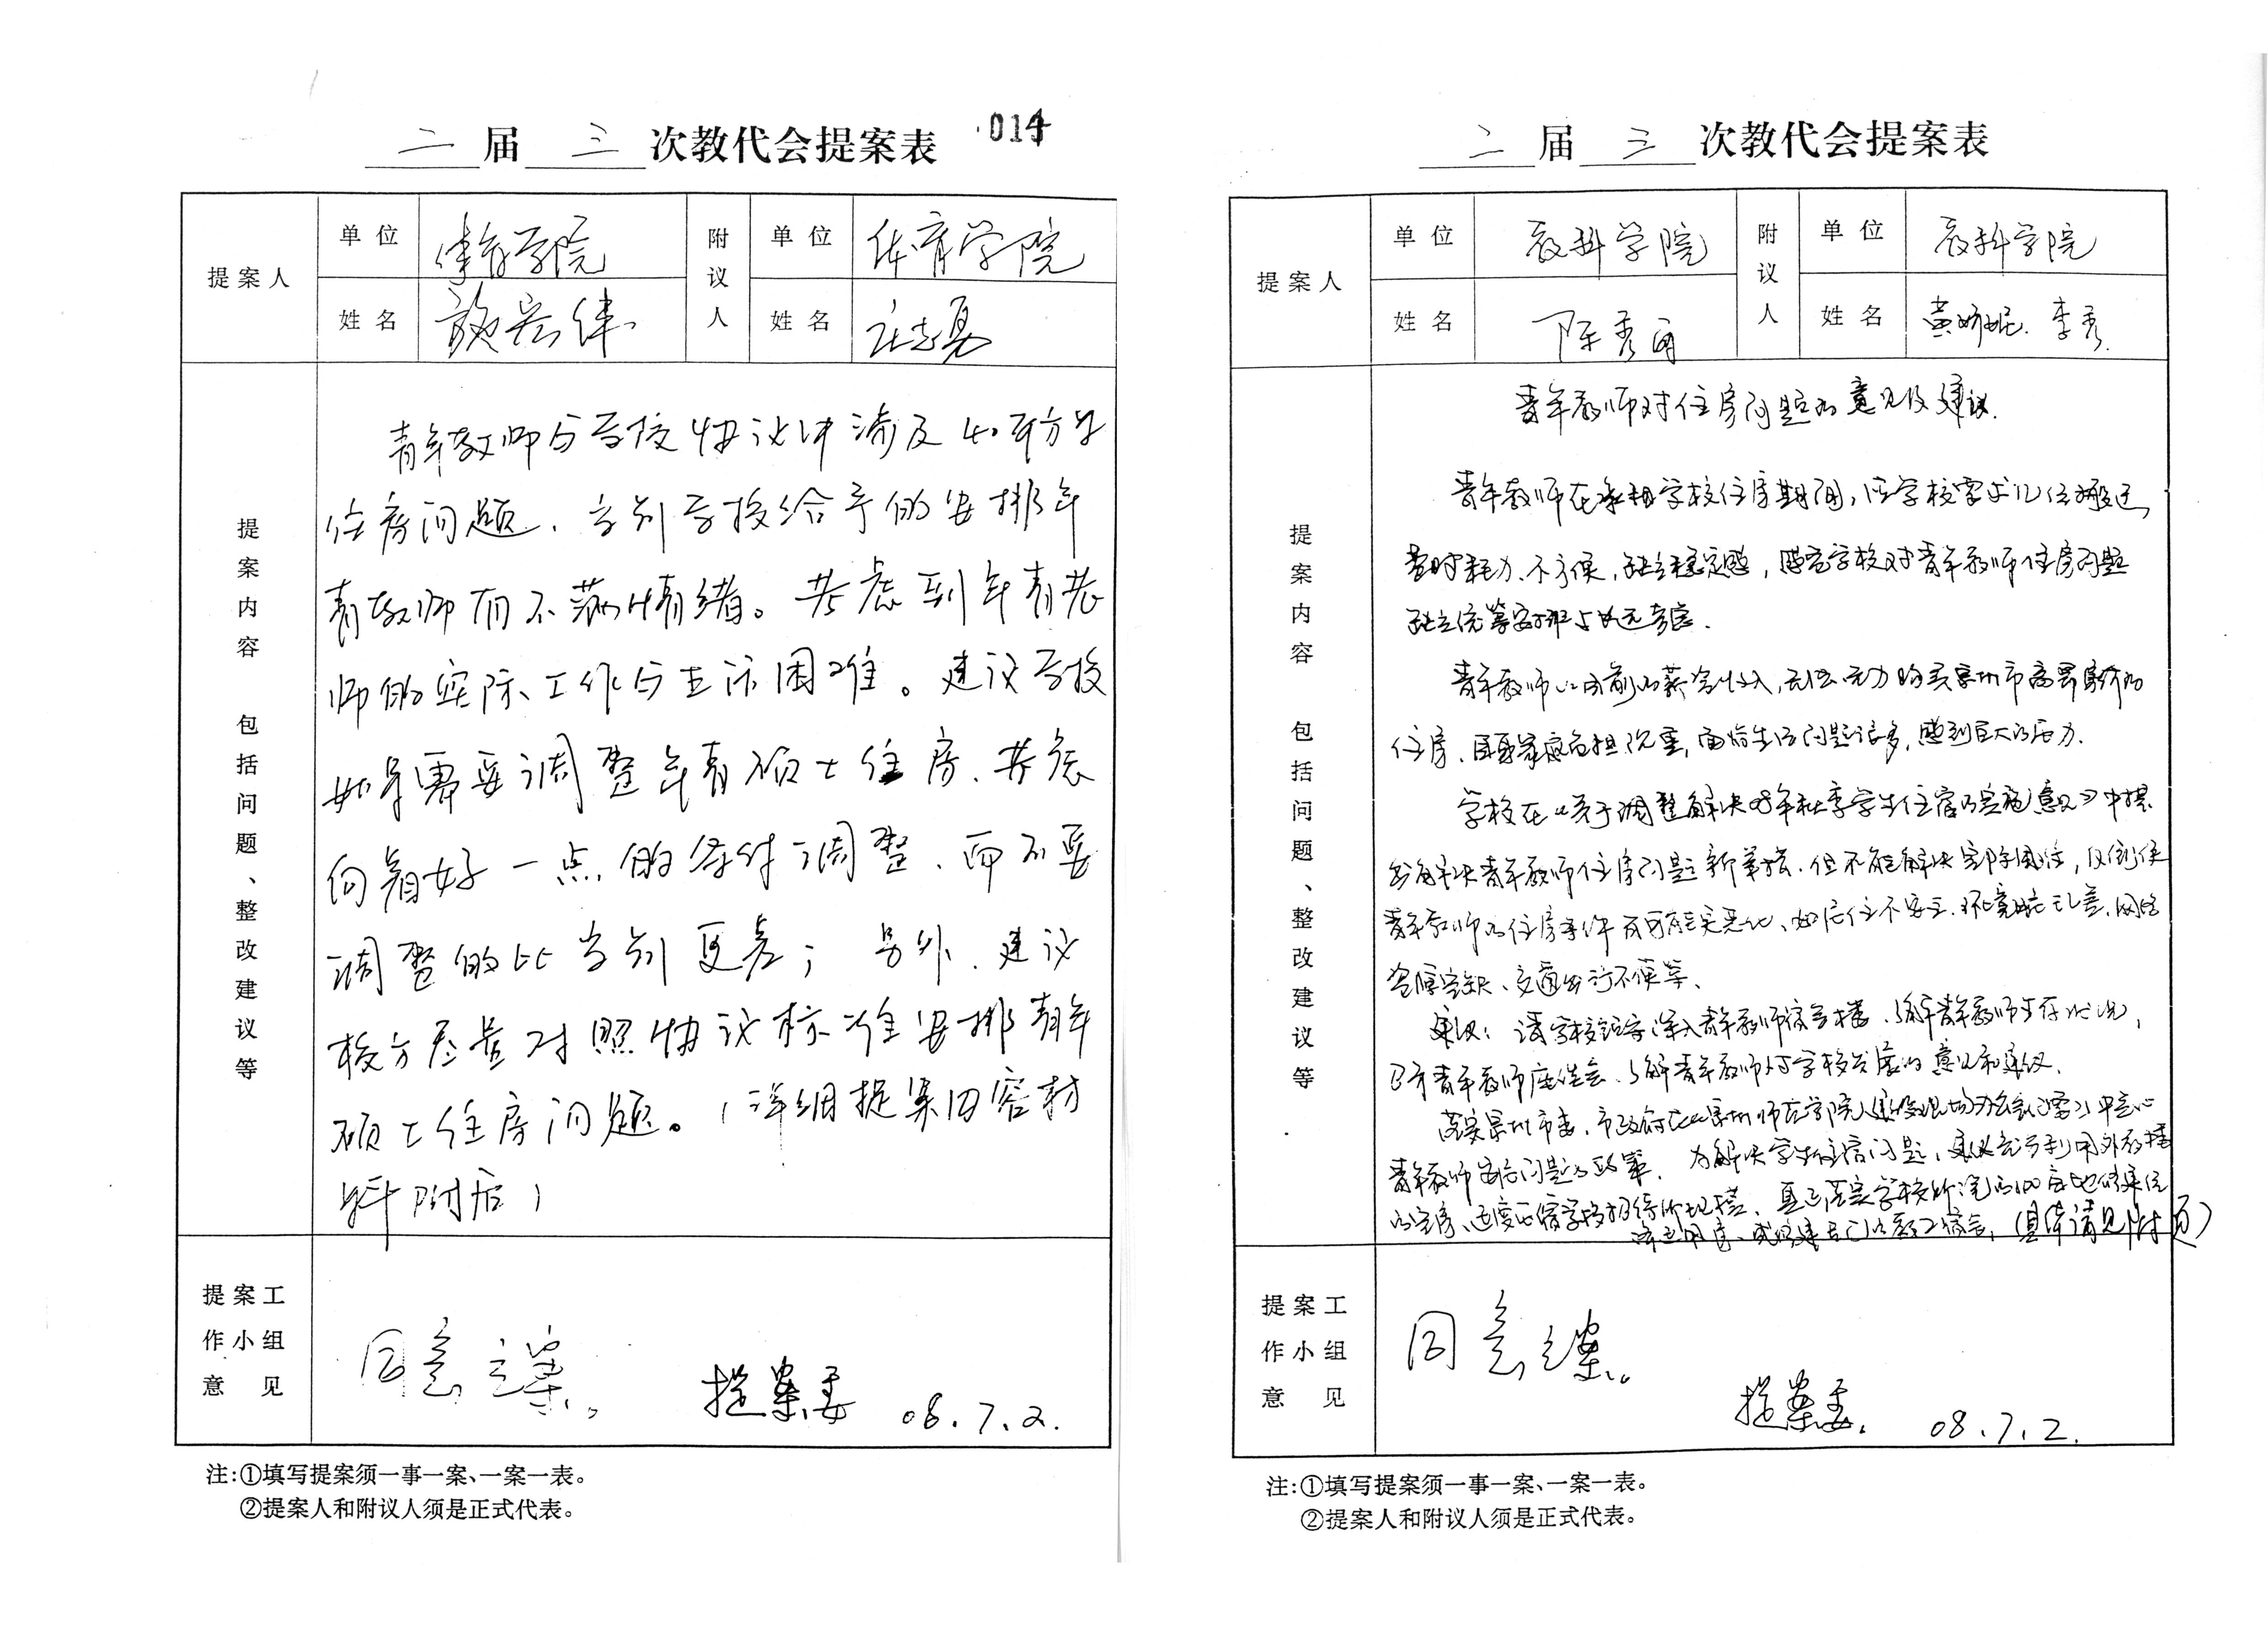 二届三次教代会提案表 014
提案人
单位
体育学院
附议人
单位
体育学院
姓名
施宏伟
姓名
庄志勇
提案内容 包括问题、整改建议等
青年教师与学校协议中涉及40平方米
住房问题、当前学校给予的安排年
青教师有不满情绪。考虑到年青老
师的实际工作与生活困难。建议学校
如果需要调整年青硕士住房、考虑
向着好一点的条件调整、而不要
调整的比当前更差；另外、建议
校方尽量对照协议标准安排青年
硕士住房问题。（详细提案内容材
料附后）
提案工作小组意见
同意立案。
提案委 08.7.2.
注:①填写提案须一事一案、一案一表。
②提案人和附议人须是正式代表。
二届三次教代会提案表
提案人
单位
教科学院
附议人
单位
教科学院
姓名
陈秀
姓名
黄娇妮.李秀.
提案内容 包括问题、整改建议等
青年教师对住房问题的意见及建议.
青年教师在承租学校住房期间,应学校要求几经搬迁,
费时耗力、不方便,缺乏稳定感,感觉学校对青年教师住房问题
缺乏统筹安排与长远考虑.
青年教师以目前的薪金收入,无法无力购买泉州市高昂房价的
住房.且家庭负担沉重,面临生活问题很多,感到巨大的压力.
学校在《关于调整解决08年秋季学生住宿的实施意见》中提
出解决青年教师住房问题新举措.但不能解决实际困难,反倒使
青年教师的住房条件有可能更恶化、如居住不安全.环境脏乱差.网络
资源空缺、交通出行不便等、
建议:请学校领导深入青年教师宿舍楼、了解青年教师生存状况,
召开青年教师座谈会、了解青年教师对学校发展的意见和建议.
落实泉州市委、市政府在《泉州师范学院建设现场办公会议纪要》中关心
青年教师生活问题的政策. 为解决学生住宿问题,建议充分利用外教楼
的空房、适度压缩学校招待所规模. 真正落实学校所说的100亩地修建经
济适用房、或修建自己的教工宿舍,(具体请见附页)
提案工作小组意见
同意立案。
提案委. 08.7.2.
注:①填写提案须一事一案、一案一表。
②提案人和附议人须是正式代表。